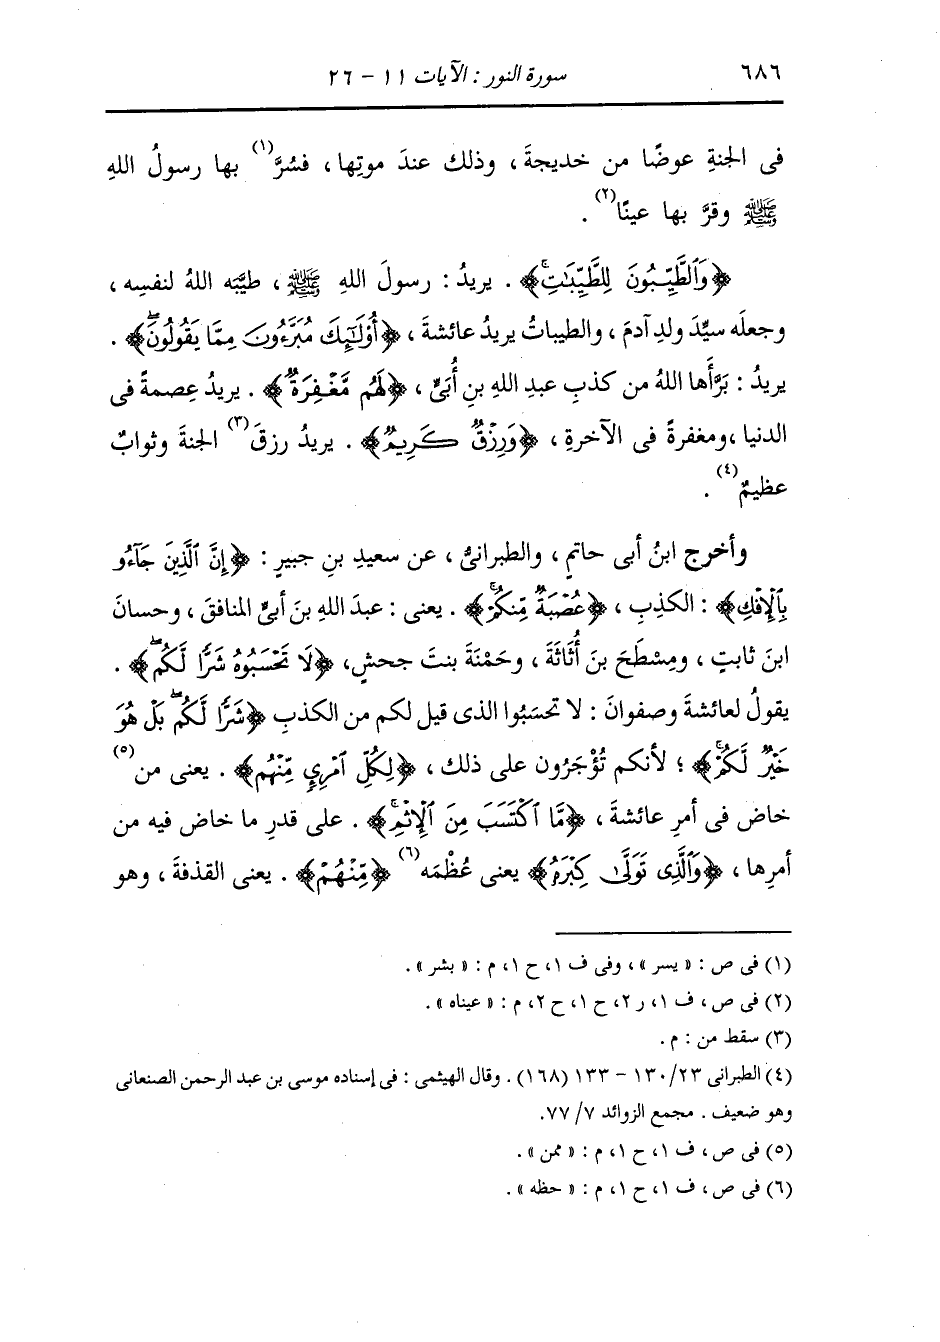 ٦٨٦
سورة النور : الآيات ١١ - ٢٦
فى الجنةِ عوضًا من خديجةَ ، وذلك عندَ موتِها ، فسُرَّ(١) بها رسولُ اللهِ
ﷺ وقرَّ بها عينًا(٢) .
﴿وَٱلطَّيِّبُونَ لِلطَّيِّبَٰتِۚ﴾ . يريدُ : رسولَ اللهِ ﷺ ، طيَّبَه اللهُ لنفسِه ،
وجعلَه سيِّدَ ولدِ آدمَ ، والطيباتُ يريدُ عائشةَ ، ﴿أُوْلَٰٓئِكَ مُبَرَّءُونَ مِمَّا يَقُولُونَۖ﴾ .
يريدُ : بَرَّأَها اللهُ من كذبِ عبدِ اللهِ بنِ أُبَىٍّ ، ﴿لَهُم مَّغْفِرَةٌ﴾ . يريدُ عِصمةً فى
الدنيا ،ومغفرةً فى الآخرةِ ، ﴿وَرِزْقٌ كَرِيمٌ﴾ . يريدُ رزقَ(٣) الجنةَ وثوابٌ
عظيمٌ(٤) .
وأخرج ابنُ أبى حاتمٍ ، والطبرانىُّ ، عن سعيدِ بنِ جبيرٍ : ﴿إِنَّ ٱلَّذِينَ جَآءُو
بِٱلْإِفْكِ﴾ : الكذبِ ، ﴿عُصْبَةٌ مِّنكُمْۚ﴾ . يعنى : عبدَ اللهِ بنَ أبىٍّ المنافقَ ، وحسانَ
ابنَ ثابتٍ ، ومِسْطَحَ بنَ أُثَاثَةَ ، وحَمْنَةَ بنتَ جحشٍ، ﴿لَا تَحْسَبُوهُ شَرًّا لَّكُمۖ﴾ .
يقولُ لعائشةَ وصفوانَ : لا تحسَبُوا الذى قيل لكم من الكذبِ ﴿شَرًّا لَّكُمۖ بَلْ هُوَ
خَيْرٌ لَّكُمْۚ﴾ ؛ لأنكم تُؤْجَرُون على ذلك ، ﴿لِكُلِّ ٱمْرِئٍ مِّنْهُم﴾ . يعنى من(٥)
خاض فى أمرِ عائشةَ ، ﴿مَّا ٱكْتَسَبَ مِنَ ٱلْإِثْمِۚ﴾ . على قدرِ ما خاض فيه من
أمرِها ، ﴿وَٱلَّذِى تَوَلَّىٰ كِبْرَهُۥ﴾ يعنى عُظْمَه(٦) ﴿مِنْهُمْ﴾ . يعنى القذفةَ ، وهو
(١) فى ص : « يسر » ، وفى ف ١، ح ١، م : « بشر » .
(٢) فى ص ، ف ١، ر ٢، ح ١، ح ٢، م : « عيناه » .
(٣) سقط من : م .
(٤) الطبرانى ١٣٠/٢٣ - ١٣٣ (١٦٨) . وقال الهيثمى : فى إسناده موسى بن عبد الرحمن الصنعانى
وهو ضعيف . مجمع الزوائد ٧/ ٧٧.
(٥) فى ص ، ف ١، ح ١، م : « ممن » .
(٦) فى ص ، ف ١، ح ١، م : « حظه » .